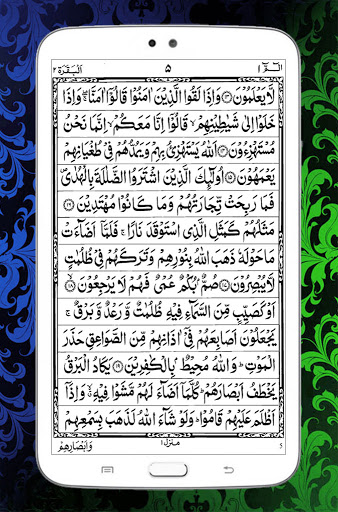 الٓمّٓ ۱ ۵ اَلْبَقَرَة ۲
لَّا يَعْلَمُوْنَ ﴿۱۳﴾ وَاِذَا لَقُوا الَّذِيْنَ اٰمَنُوْا قَالُوْٓا اٰمَنَّا ۖۚ وَاِذَا
خَلَوْا اِلٰى شَيٰطِيْنِهِمْ ۙ قَالُوْٓا اِنَّا مَعَكُمْ ۙ اِنَّمَا نَحْنُ
مُسْتَهْزِءُوْنَ ﴿۱۴﴾ اَللّٰهُ يَسْتَهْزِئُ بِهِمْ وَيَمُدُّهُمْ فِيْ طُغْيَانِهِمْ
يَعْمَهُوْنَ ﴿۱۵﴾ اُولٰٓئِكَ الَّذِيْنَ اشْتَرَوُا الضَّلٰلَةَ بِالْهُدٰى ۪
فَمَا رَبِحَتْ تِّجَارَتُهُمْ وَمَا كَانُوْا مُهْتَدِيْنَ ﴿۱۶﴾
مَثَلُهُمْ كَمَثَلِ الَّذِى اسْتَوْقَدَ نَارًا ۚ فَلَمَّآ اَضَآءَتْ
مَا حَوْلَهٗ ذَهَبَ اللّٰهُ بِنُوْرِهِمْ وَتَرَكَهُمْ فِيْ ظُلُمٰتٍ
لَّا يُبْصِرُوْنَ ﴿۱۷﴾ صُمٌّۢ بُكْمٌ عُمْيٌ فَهُمْ لَا يَرْجِعُوْنَ ﴿۱۸﴾
اَوْ كَصَيِّبٍ مِّنَ السَّمَآءِ فِيْهِ ظُلُمٰتٌ وَّرَعْدٌ وَّبَرْقٌ ۚ
يَجْعَلُوْنَ اَصَابِعَهُمْ فِيْٓ اٰذَانِهِمْ مِّنَ الصَّوَاعِقِ حَذَرَ
الْمَوْتِ ؕ وَاللّٰهُ مُحِيْطٌۢ بِالْكٰفِرِيْنَ ﴿۱۹﴾ يَكَادُ الْبَرْقُ
يَخْطَفُ اَبْصَارَهُمْ ؕ كُلَّمَآ اَضَآءَ لَهُمْ مَّشَوْا فِيْهِ ۙ وَاِذَآ
اَظْلَمَ عَلَيْهِمْ قَامُوْا ؕ وَلَوْ شَآءَ اللّٰهُ لَذَهَبَ بِسَمْعِهِمْ
وَاَبْصَارِهِمْ منزل ۱ 5